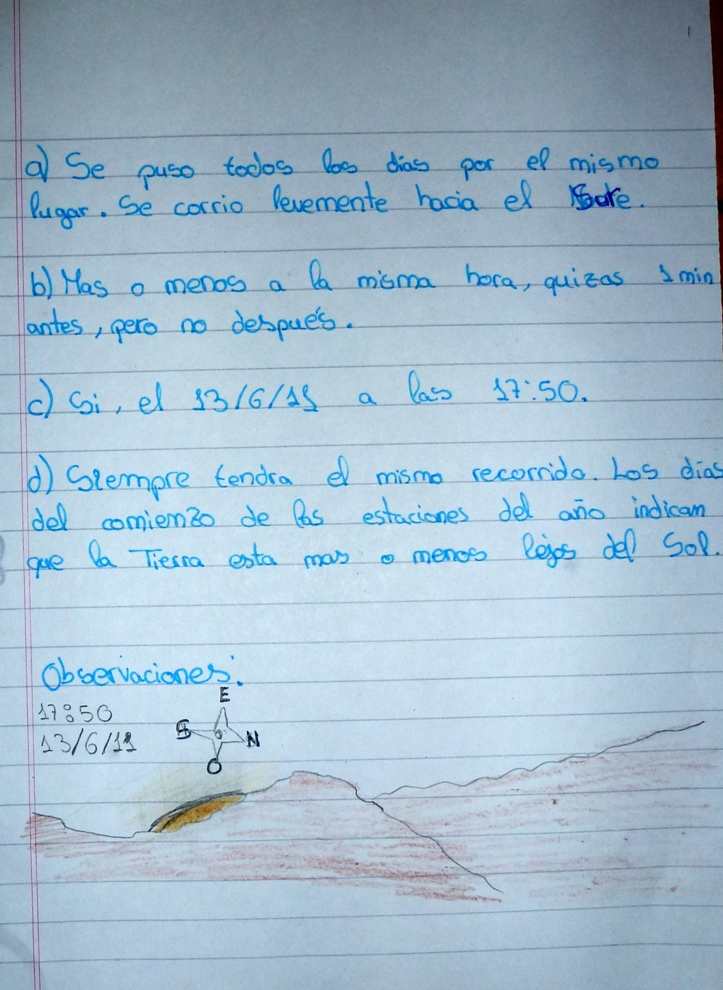 a) Se puso todos los dias por el mismo
lugar. Se corrio levemente hacia el
b) Mas o menos a la misma hora, quizas 1 min
antes, pero no después.
c) Si, el 13/6/11 a las 17:50.
d) Siempre tendra el mismo recorrido. Los dias
del comienzo de las estaciones del año indican
que la Tierra esta mas o menos lejos del Sol.
Observaciones:
17:50
13/6/11
E
S
N
O